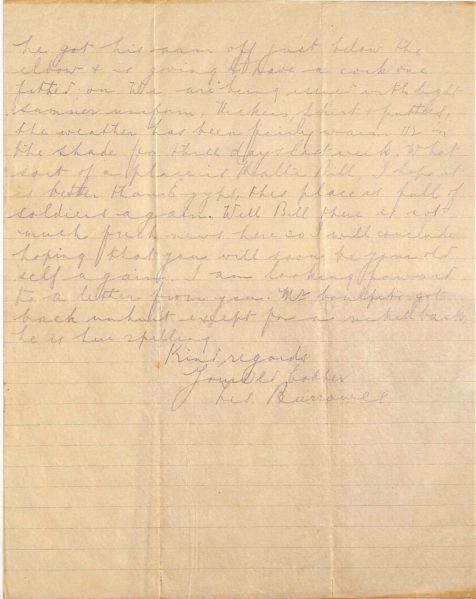 he got his arm off just below the
elbow & is going to have a cork one
fitted on. We are being issued with light
summer uniform, shirt & putties,
the weather has been fairly warm 112 in
the shade for three days last week. What
sort of a place is Malta Bill, I hope it
is better than Egypt, this place is full of
soldiers again. Well Bill there is not
much fresh news here so I will conclude
hoping that you will soon be your old
self again. I am looking forward
to a letter from you. Mr got
back unhurt except for a
he is here spelling
Kind regards
Your Old Cobber
Les. Burrowes